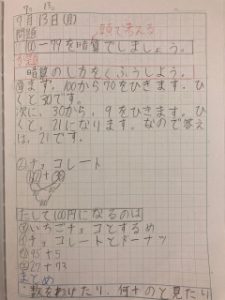 9月13日(月)
問題 頭で考える
100-79を暗算でしましょう。
暗算のし方をくふうしよう。
まず、100から70をひきます。ひ
くと30です。
次に、30から、9をひきます。ひ
くと、21になります。なので答え
は、21です。
②チョコレート
たして100円になるのは
㋐いちごチョコとするめ
㋑チョコレートとドーナツ
95+5
27+73
まとめ
数をわけたり、何十のと見たり